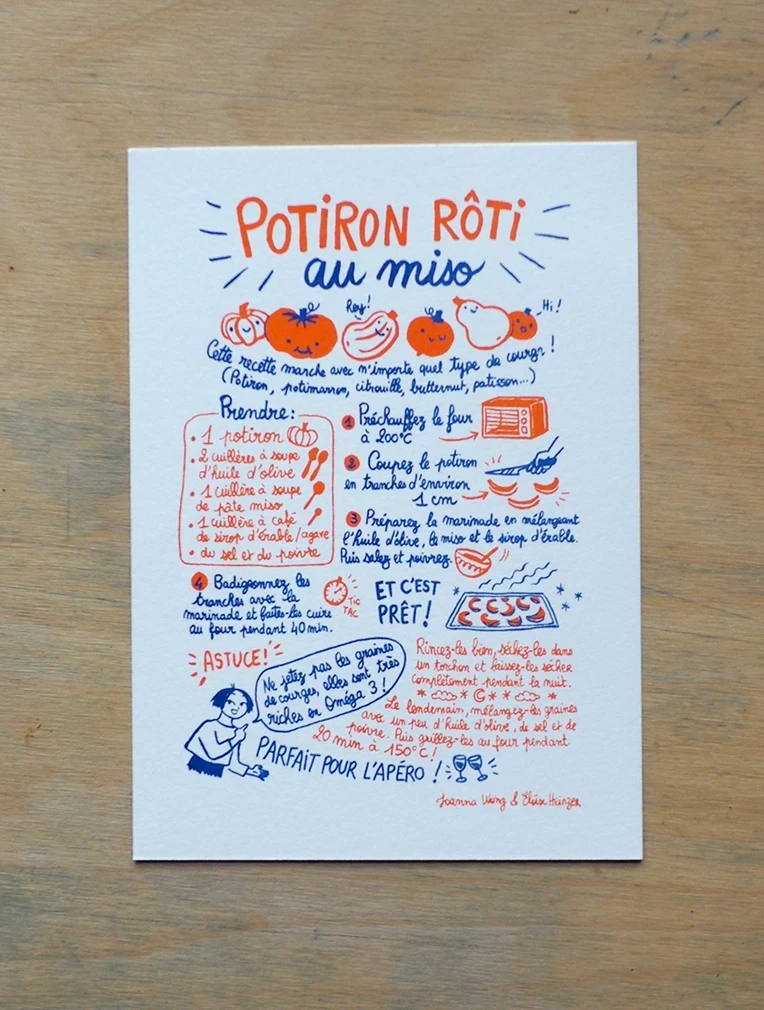 POTIRON RÔTI
au miso
Hey!
Hi!
Cette recette marche avec n'importe quel type de courge !
(Potiron, potimarron, citrouille, butternut, patisson...)
Prendre:
• 1 potiron
• 2 cuillères à soupe
d'huile d'olive
• 1 cuillère à soupe
de pâte miso
• 1 cuillère à café
de sirop d'érable/agave
• du sel et du poivre
1 Préchauffez le four
à 200°C
2 Coupez le potiron
en tranches d'environ
1 cm
3 Préparez la marinade en mélangeant
l'huile d'olive, le miso et le sirop d'érable.
Puis salez et poivrez.
4 Badigeonnez les
tranches avec la
marinade et faites-les cuire
au four pendant 40 min.
TIC
TAC
ET C'EST
PRÊT!
ASTUCE!
Ne jetez pas les graines
de courges, elles sont très
riches en Oméga 3 !
Rincez-les bien, séchez-les dans
un torchon et laissez-les sécher
complètement pendant la nuit.
Le lendemain, mélangez-les graines
avec un peu d'huile d'olive, de sel et de
poivre. Puis grillez-les au four pendant
20 min à 150°C!
PARFAIT POUR L'APÉRO !
Joanna Wong & Éloïse Heinzer